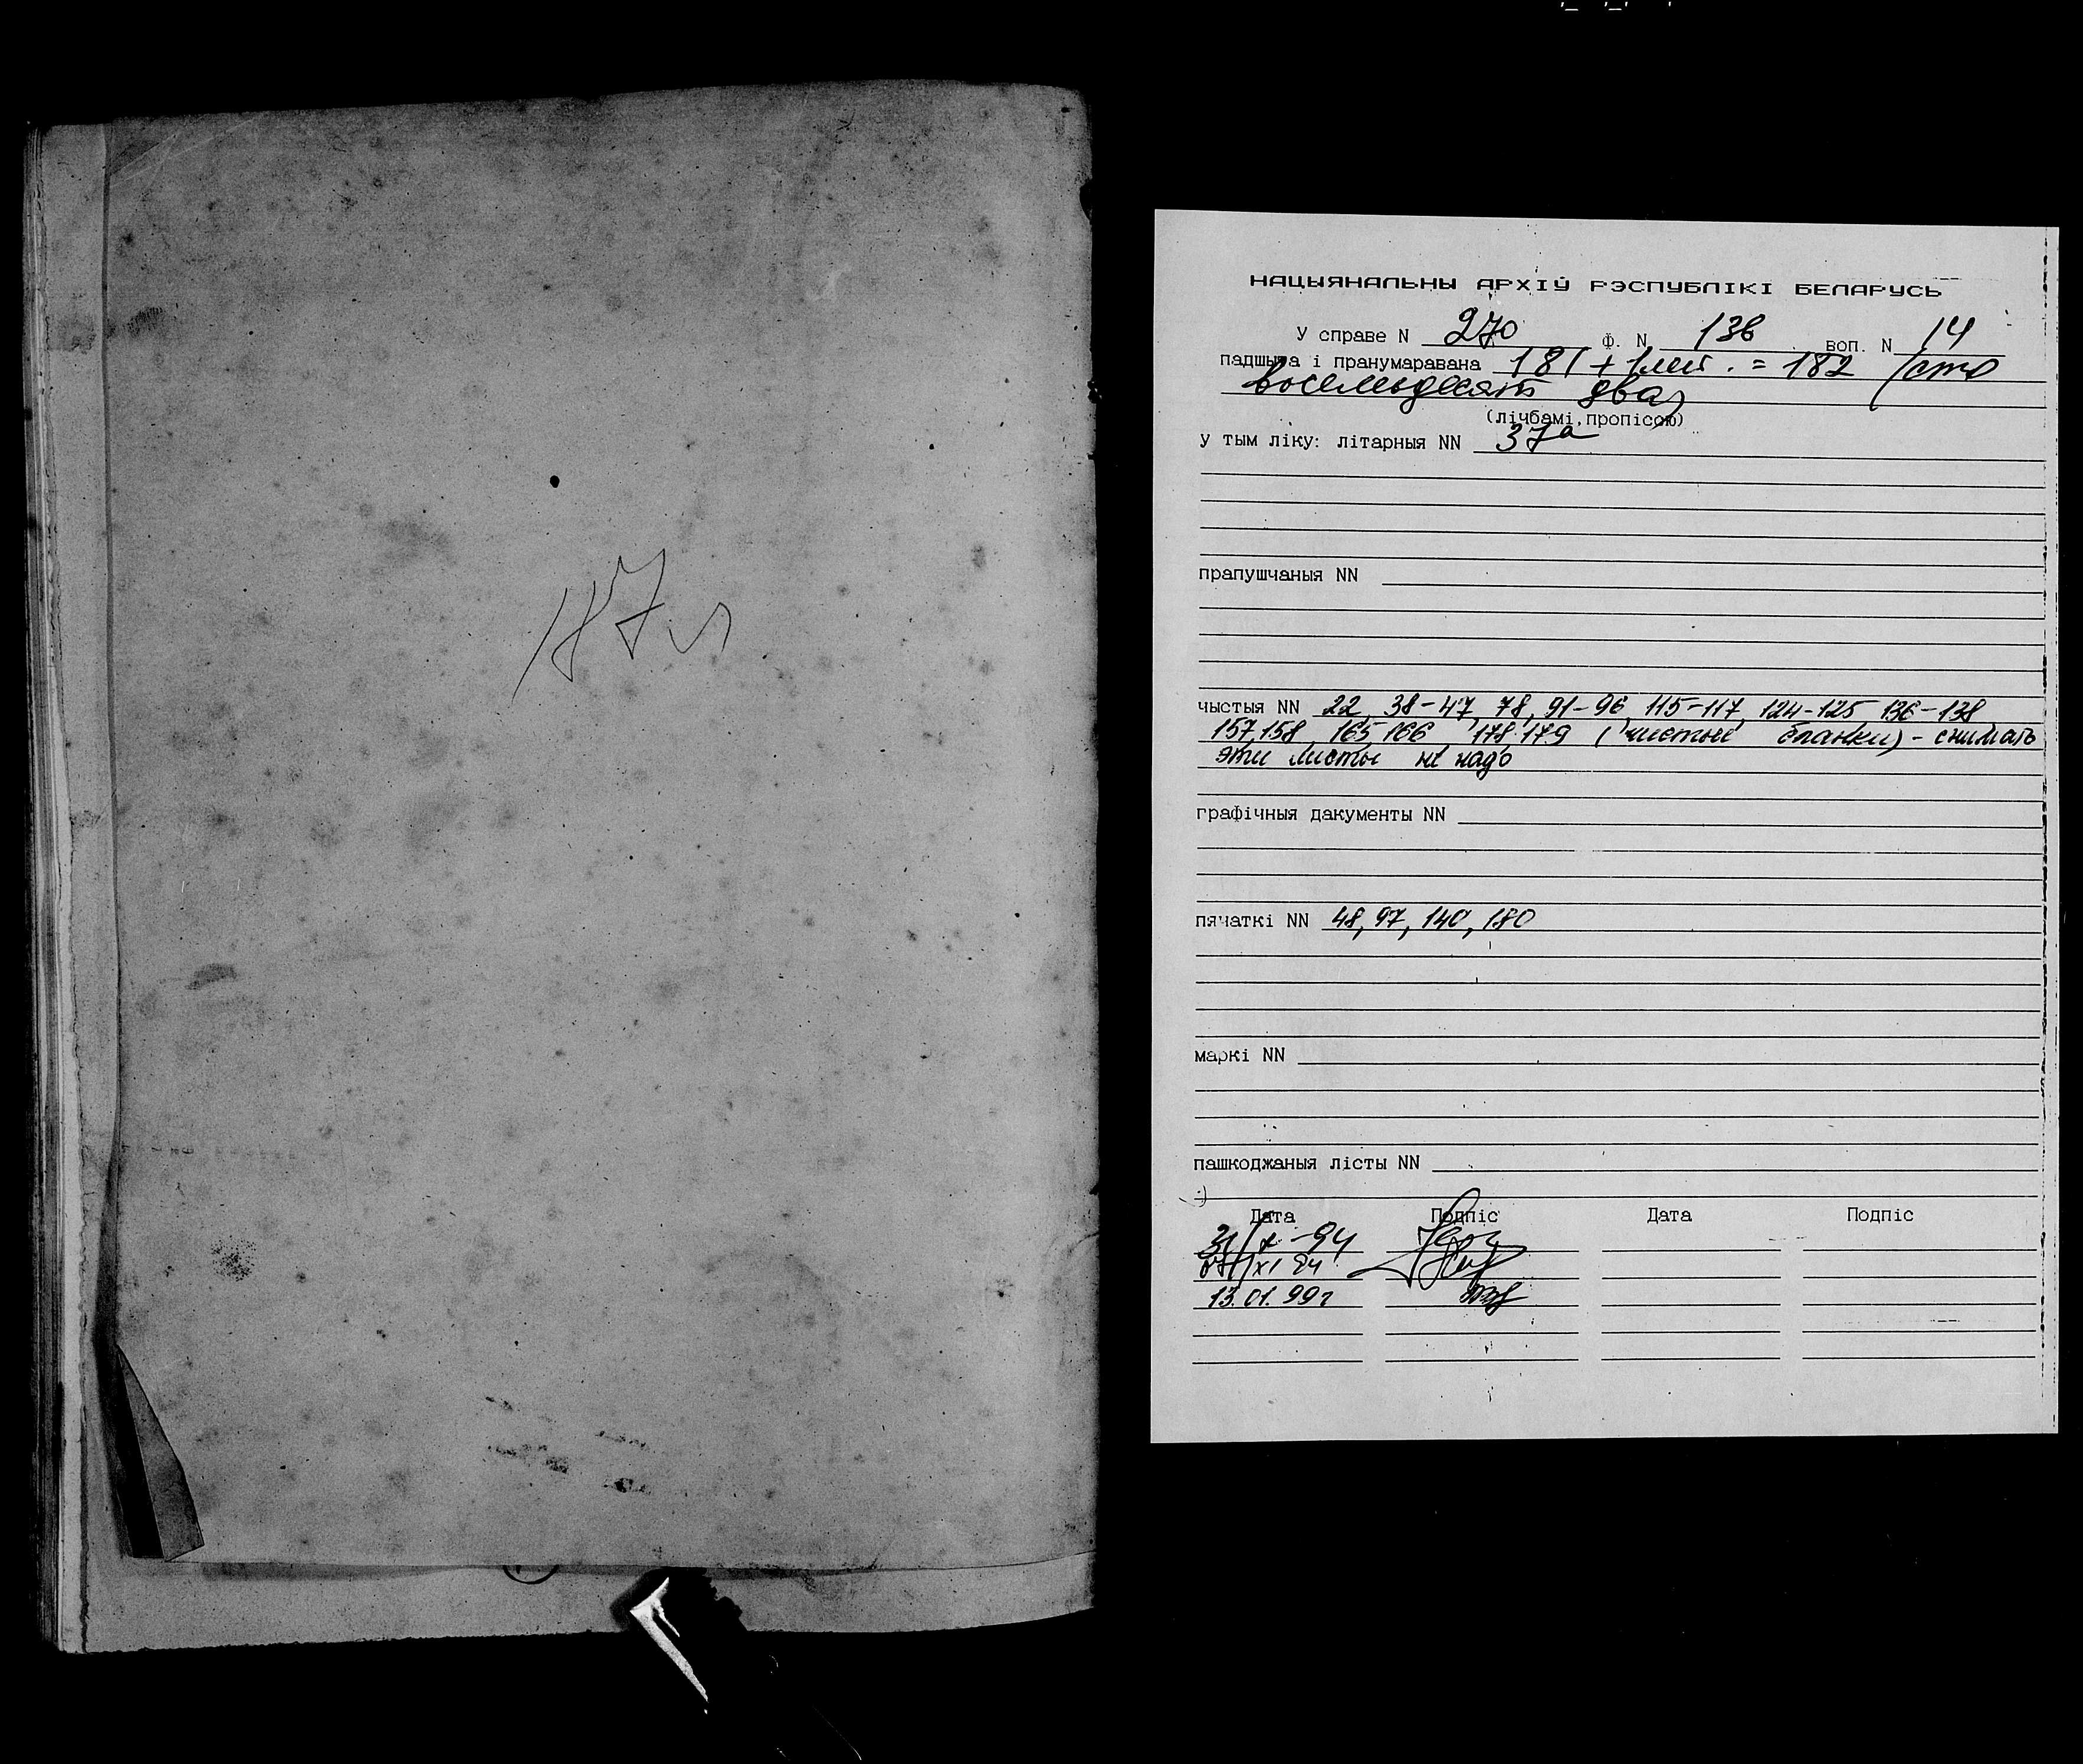 187 л
НАЦЫЯНАЛЬНЫ АРХІЎ РЭСПУБЛІКІ БЕЛАРУСЬ
У справе N 270 Ф. N 136 воп. N 14
падшыта і пранумаравана 181 + 1лит. = 182 /сто
восемьдесят два/
(лічбамі, пропісою)
у тым ліку: літарныя NN 37а
прапушчаныя NN
чыстыя NN 22, 38-47, 78, 91-96, 115-117, 124-125, 136-138
157,158, 165 166 178-179 (чистые бланки) - снимать
эти листы не надо
графічныя дакументы NN
пячаткі NN 48, 97, 140, 180
маркі NN
пашкоджаныя лісты NN
Дата Подпіс Дата Подпіс
31/X-94
XI 94
13.01.99г